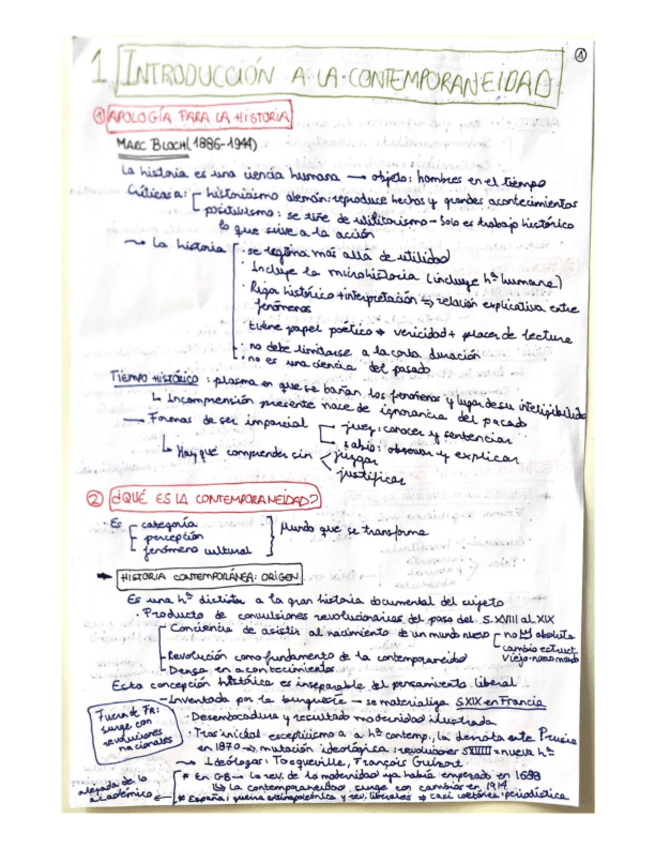 1
1. INTRODUCCIÓN A LA CONTEMPORANEIDAD
1 APOLOGÍA PARA LA HISTORIA
MARC BLOCH (1886-1944)
La historia es una ciencia humana → objeto: hombres en el tiempo
Críticas a: historicismo alemán: reproduce hechos y grandes acontecimientos
positivismo: se tiñe de utilitarismo - Solo es trabajo histórico
lo que sirve a la acción
→ La historia · se legitima más allá de utilidad
· Incluye la microhistoria (incluye hª humana)
· Rigor histórico + interpretación ↳ relación explicativa entre
fenómenos
· tiene papel poético → vericidad + placer de lectura
· no debe limitarse a la corta duración
· no es una ciencia del pasado
TIEMPO HISTÓRICO: plasma en que se bañan los fenómenos y lugar de su inteligibilidad
↳ Incomprensión presente nace de ignorancia del pasado
→ Formas de ser imparcial juez: conocer y sentenciar
sabio: observar y explicar
↳ Hay que comprender sin juzgar
justificar
2 ¿QUÉ ES LA CONTEMPORANEIDAD?
· Es categoría
percepción
fenómeno cultural
Mundo que se transforma
→ HISTORIA CONTEMPORÁNEA: ORIGEN
Es una hª distinta a la gran historia documental del sujeto
· Producto de convulsiones revolucionarias del paso del S.XVIII al XIX
Conciencia de asistir al nacimiento de un mundo nuevo no absoluta
cambio estruct.
viejo-nuevo mundo
Revolución como fundamento de la contemporaneidad
Densa en acontecimientos
Esta concepción histórica es inseparable del pensamiento liberal
- Inventada por la burguesía → se materializa S.XIX en Francia
Fuera de FR:
surge con
revoluciones
nacionales
· Desembocadura y resultado modernidad ilustrada
· Tras inicial escepticismo a hª contemp., la derrota ante Prusia
en 1870 → mutación ideológica: revoluciones SXVIII = nueva hª
→ Ideólogos: Tocqueville, François Guizot
alejada de lo
académico
* En GB → la rev. de la modernidad ya había empezado en 1688
↳ La contemporaneidad surge con cambios en 1914
* España: guerra antinapoleónica y rev. liberales → casi periodística